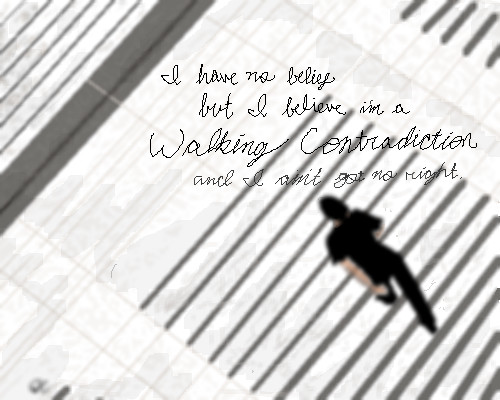 I have no belief
but I believe i'm a
Walking Contradiction
and I ain't got no right.